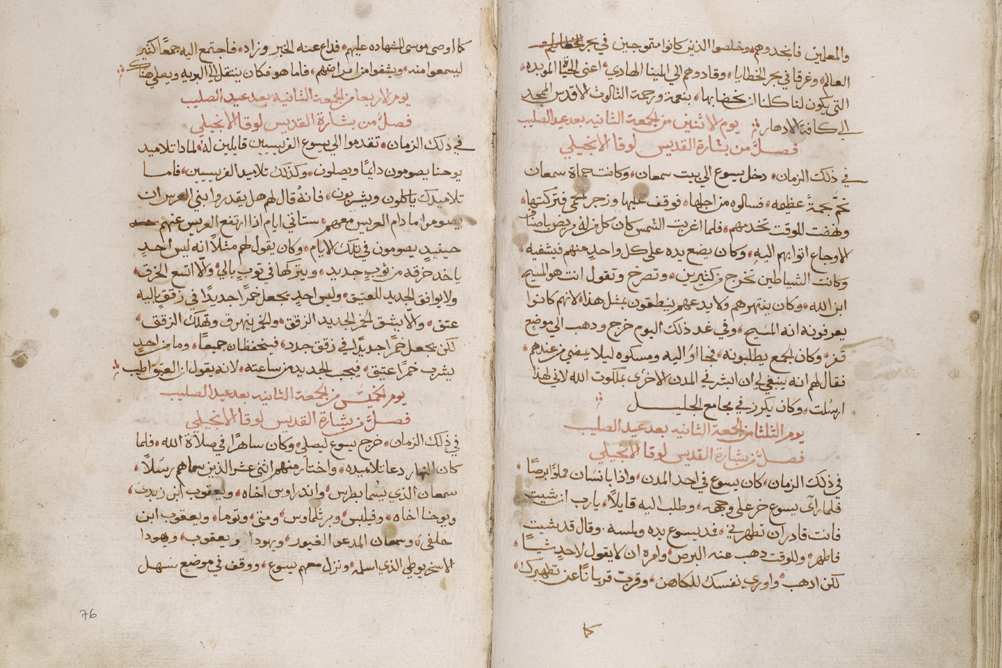 والمعلمين فانجدوهم وخلصوا الذين كانوا متموجين في بحر
العالم وغرقا في بحر الخطايا وقادوهم الى المينا الهادي اعني الحياة الموبده
التي يكون لنا كلنا ان نحضا بها بنعمة ورحمة الثالوث الاقدس المجد
الى كافة الادهار يوم الاثنين من الجمعة الثانيه بعد عيد الصليب
فصل من بشارة القديس لوقا الانجيلي
في ذلك الزمان دخل يسوع الى بيت سمعان وكانت حماة سمعان
تحم بحمة عظيمه فسالوه من اجلها فوقف عليها وزجر الحمى فتركتها
ونهضت للوقت تخدمهم فلما اغربت الشمس كان كل من له مريض باصناف
الاوجاع اتوا بهم اليه وكان يضع يده على كل واحد منهم فيشفيه
وكانت الشياطين تخرج من كثيرين وتصرخ وتقول انت هو المسيح
ابن الله وكان ينتهرهم ولا يدعهم ينطقون بمثل هذا لانهم كانوا
يعرفونه انه المسيح وفي غد ذلك اليوم خرج وذهب الى موضع
قفر وكان الجمع يطلبونه فجاوا اليه ومسكوه ليلا يمضي من عندهم
فقال لهم انه ينبغي لي ان ابشر في المدن الاخرى بملكوت الله لاني لهذا
ارسلت وكان يكرز في مجامع الجليل
يوم الثلثا من الجمعة الثانيه بعد عيد الصليب
فصل من بشارة القديس لوقا الانجيلي
في ذلك الزمان كان يسوع في احد المدن واذا بانسان مملوا برصا
فلما رآى يسوع خر على وجهه وطلب اليه قايلا يارب ان شيت
فانت قادر ان تطهرني فمد يسوع يده ولمسه وقال قد شيت
فاطهر وللوقت ذهب عنه البرص وامره ان لا يقول لاحد شيا
لكن اذهب واوري نفسك للكاهن وقرب قربانا عن تطهيرك
كما
كما اوصى موسى للشهاده عليهم فذاع عنه الخبر وزاد فاجتمع اليه جمعا كثير
ليسمعوا منه ويشفوا من امراضهم فاما هو فكان ينتقل الى البريه ويصلي هناك
يوم الاربعا من الجمعة الثانية بعد عيد الصليب
فصل من بشارة القديس لوقا الانجيلي
في ذلك الزمان تقدموا الى يسوع الفريسيين قايلين له لماذا تلاميد
يوحنا يصومون دايما ويصلون وكذلك تلاميد الفريسيين فاما
تلاميدك ياكلون ويشربون فانه قال لهم هل يقدروا بني العرس ان
يصوموا ما دام العريس معهم ستاتي ايام اذا ارتفع العريس عنهم
حينيد يصومون في تلك الايام وكان يقول لهم مثلا انه ليس احد
ياخد خرقه من توب جديد ويتركها في توب بالي والا اتسع الخرق
ولا يوافق الجديد للعتيق وليس احد يجعل خمرا جديدا في زقق باليه
عتق والا يشق الخمر الجديد الزقق والخمر يتهرق وتهلك الزقق
لكن يجعل خمرا جديدا في زقق جدد فيتحفظان جميعا وما من احد
يشرب خمرا عتيق فيحب الجديد من ساعته لانه يقول ان العتيق اطيب
يوم الخميس من الجمعة الثانيه بعد عيد الصليب
فصل من بشارة القديس لوقا الانجيلي
في ذلك الزمان خرج يسوع ليصلي وكان ساهرا في صلاة الله فلما
كان النهار دعا تلاميده واختار منهم اثنى عشر الذين سماهم رسلا
سمعان الذي يسما بطرس واندراوس اخاه ويعقوب ابن زبدى
ويوحنا اخاه وفيلبس وبرتلماوس ومتى وتوما ويعقوب ابن
حلفى وسمعان المدعوا الغيور ويهودا ويعقوب ويهودا
الاسخريوطي الذي اسلمه ونزل معهم يسوع ووقف في موضع سهل
76